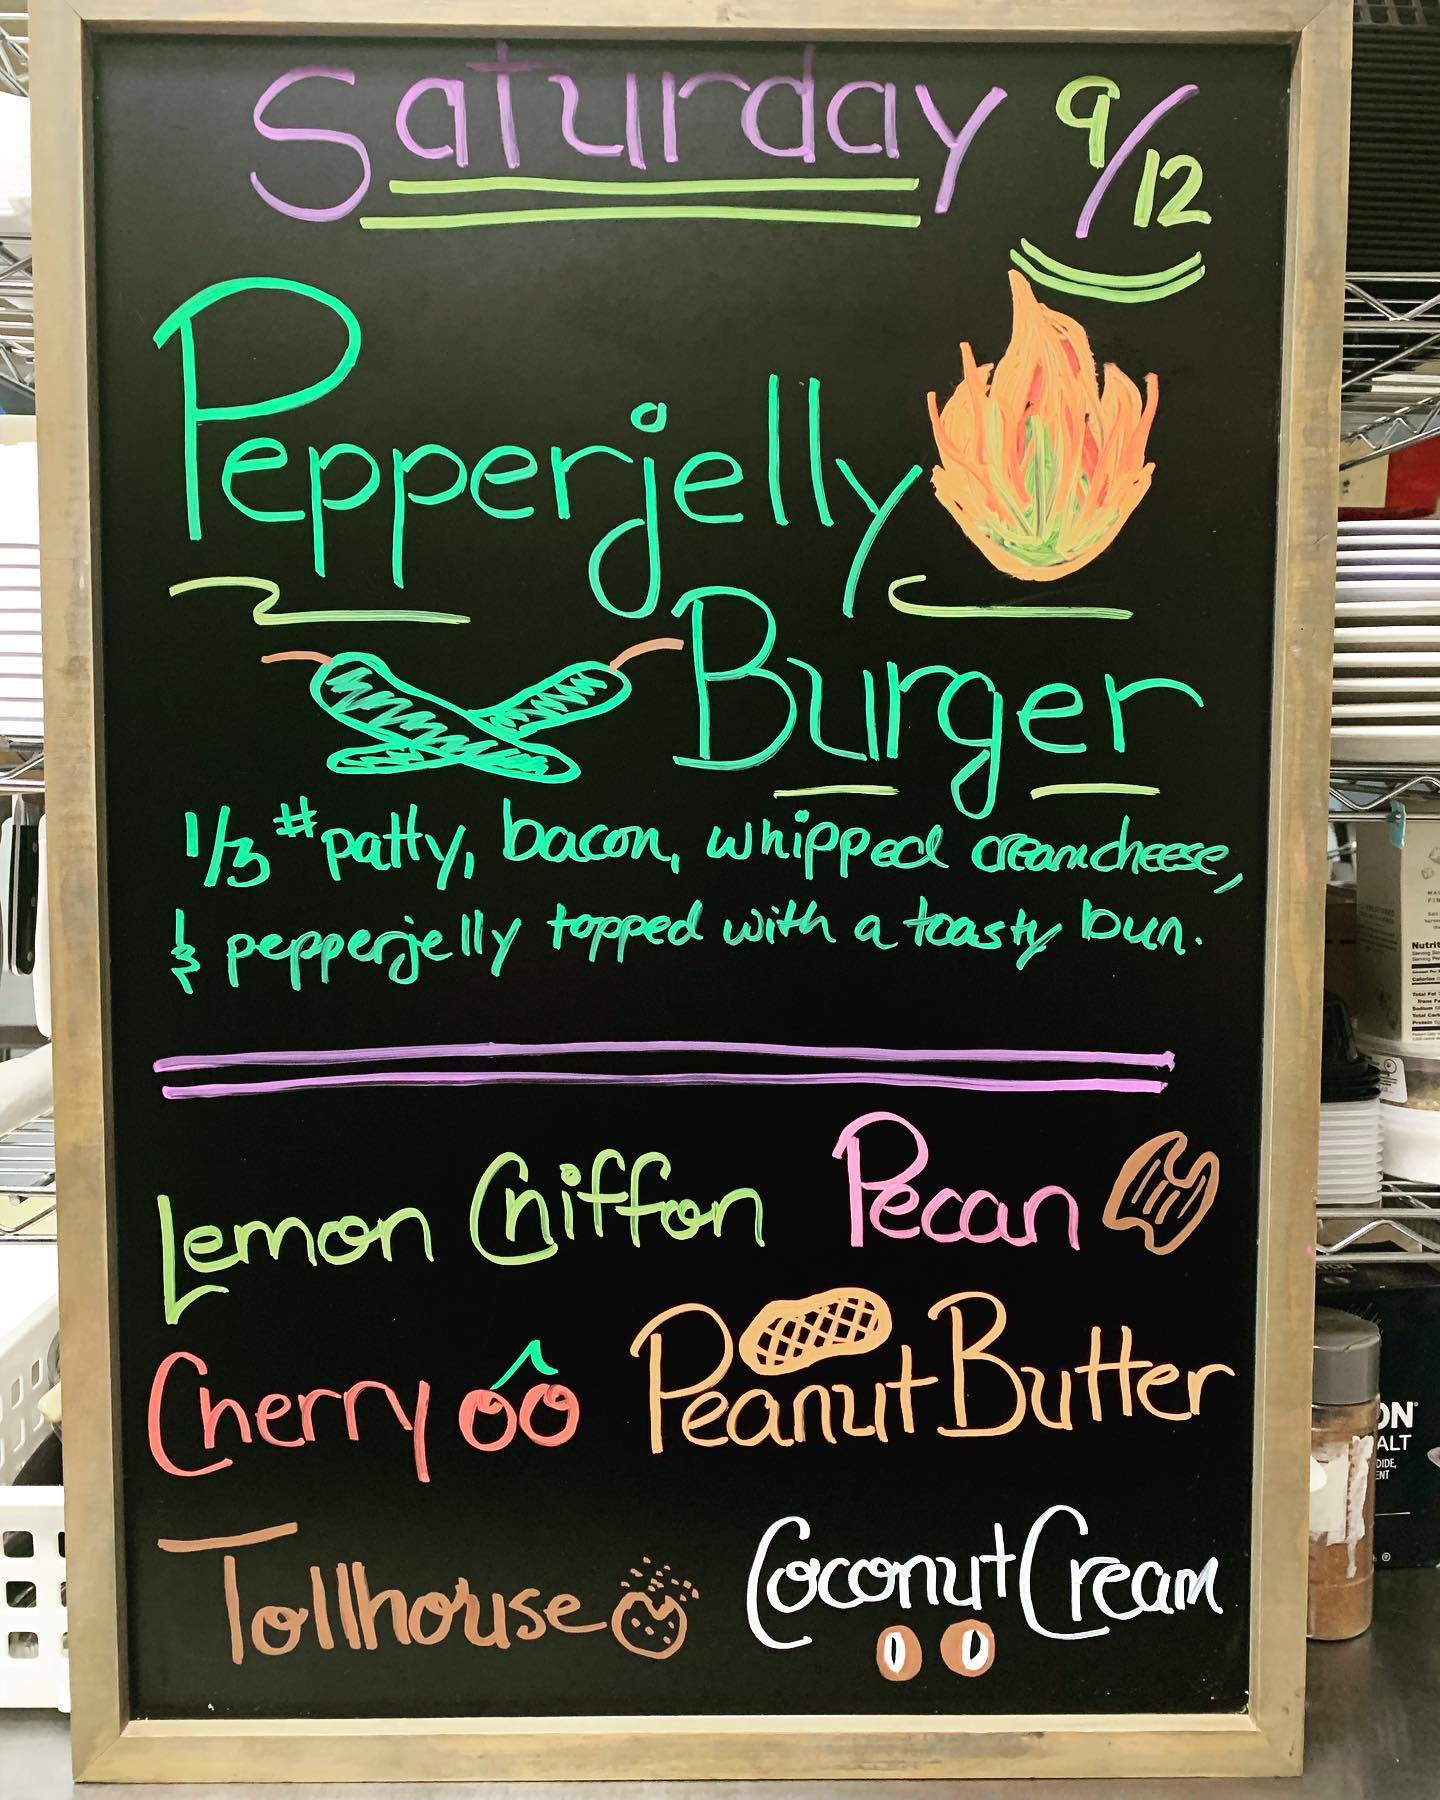 Saturday 9/12
Pepperjelly
Burger
1/3 # patty, bacon, whipped creamcheese,
& pepperjelly topped with a toasty bun.
Lemon Chiffon Pecan
Cherry Peanut Butter
Tollhouse Coconut Cream
Nutrit
Calories
Total Fat
ON
ALT